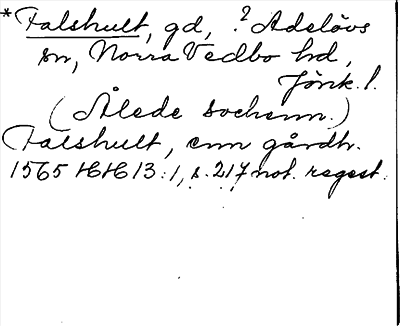 *Falshult, gd, ? Adelövs
sn, Norra Vedbo hd,
Jönk. l.
(Ålede sochenn.)
Falshult, enn gårdh.
1565 HH 13:1, s. 217 not. regest.